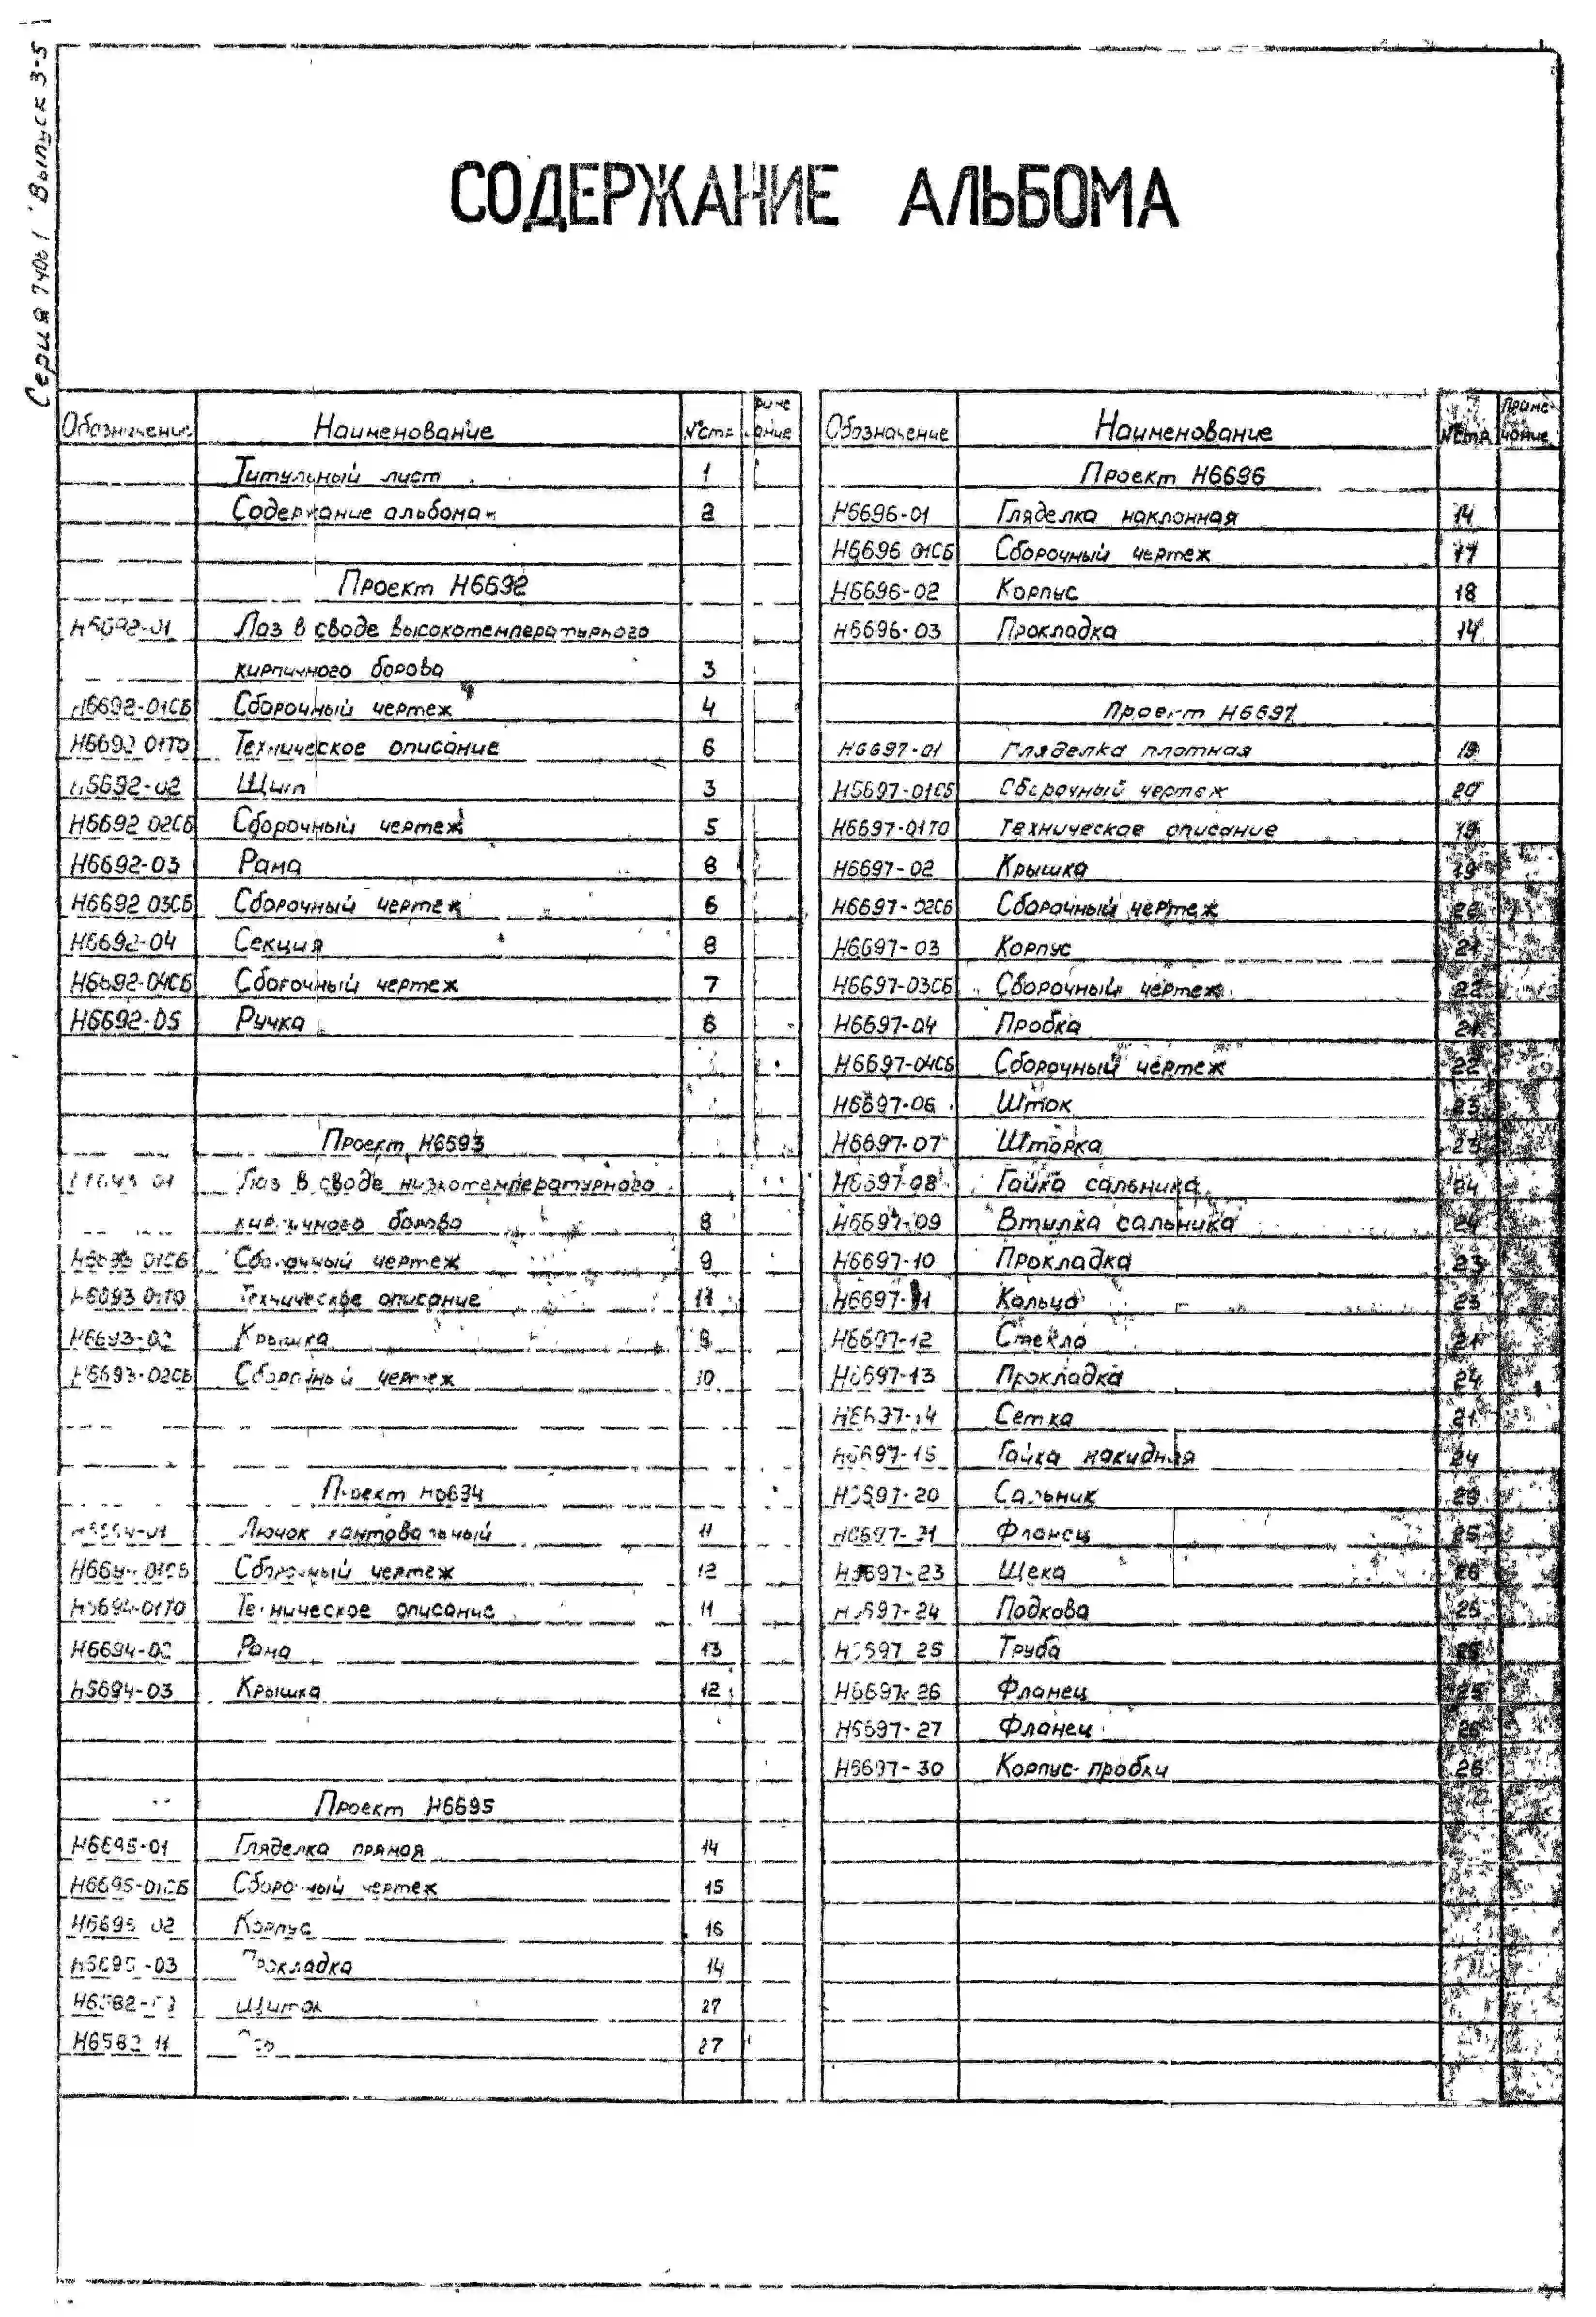 Серия 7406-1 Выпуск 3-5
СОДЕРЖАНИЕ АЛЬБОМА
Обозначение Наименование №стр. Примечание
Титульный лист 1
Содержание альбома 2
Проект Н6692
Н6692-01 Лаз в своде высокотемпературного
кирпичного борова 3
Н6692-01СБ Сборочный чертеж 4
Н6692 01ТО Техническое описание 6
Н6692-02 Щит 3
Н6692 02СБ Сборочный чертеж 5
Н6692-03 Рама 8
Н6692 03СБ Сборочный чертеж 6
Н6692-04 Секция 8
Н6692-04СБ Сборочный чертеж 7
Н6692-05 Ручка 8
Проект Н6693
Н6693 01 Лаз в своде низкотемпературного
кирпичного борова 8
Н6693 01СБ Сборочный чертеж 9
Н6693 01ТО Техническое описание 11
Н6693-02 Крышка 9
Н6693-02СБ Сборочный чертеж 10
Проект Н6694
Н6694-01 Лючок кантовальный 11
Н6694-01СБ Сборочный чертеж 12
Н6694-01ТО Техническое описание 11
Н6694-02 Рама 13
Н6694-03 Крышка 12
Проект Н6695
Н6695-01 Гляделка прямая 14
Н6695-01СБ Сборочный чертеж 15
Н6695 02 Корпус 16
Н6695-03 Прокладка 14
Щиток 27
Н6582 11 27
Обозначение Наименование №стр. Примечание
Проект Н6696
Н6696-01 Гляделка наклонная 14
Н6696 01СБ Сборочный чертеж 17
Н6696-02 Корпус 18
Н6696-03 Прокладка 14
Проект Н6697
Н6697-01 Гляделка плотная 19
Н6697-01СБ Сборочный чертеж 20
Н6697-01ТО Техническое описание 19
Н6697-02 Крышка 19
Н6697-02СБ Сборочный чертеж 20
Н6697-03 Корпус 21
Н6697-03СБ Сборочный чертеж 22
Н6697-04 Пробка 21
Н6697-04СБ Сборочный чертеж 22
Н6697-06 Шток 23
Н6697-07 Шторка 23
Н6697-08 Гайка сальника 24
Н6697-09 Втулка сальника 24
Н6697-10 Прокладка 23
Н6697-11 Кольцо 23
Н6697-12 Стекло 21
Н6697-13 Прокладка 24
Н6697-14 Сетка 21
Н6697-15 Гайка накидная 24
Н6697-20 Сальник
Н6697-21 Фланец 25
Н6697-23 Щека 26
Н6697-24 Подкова 25
Н6697 25 Труба
Н6697-26 Фланец 25
Н6697-27 Фланец 26
Н6697-30 Корпус пробки 26